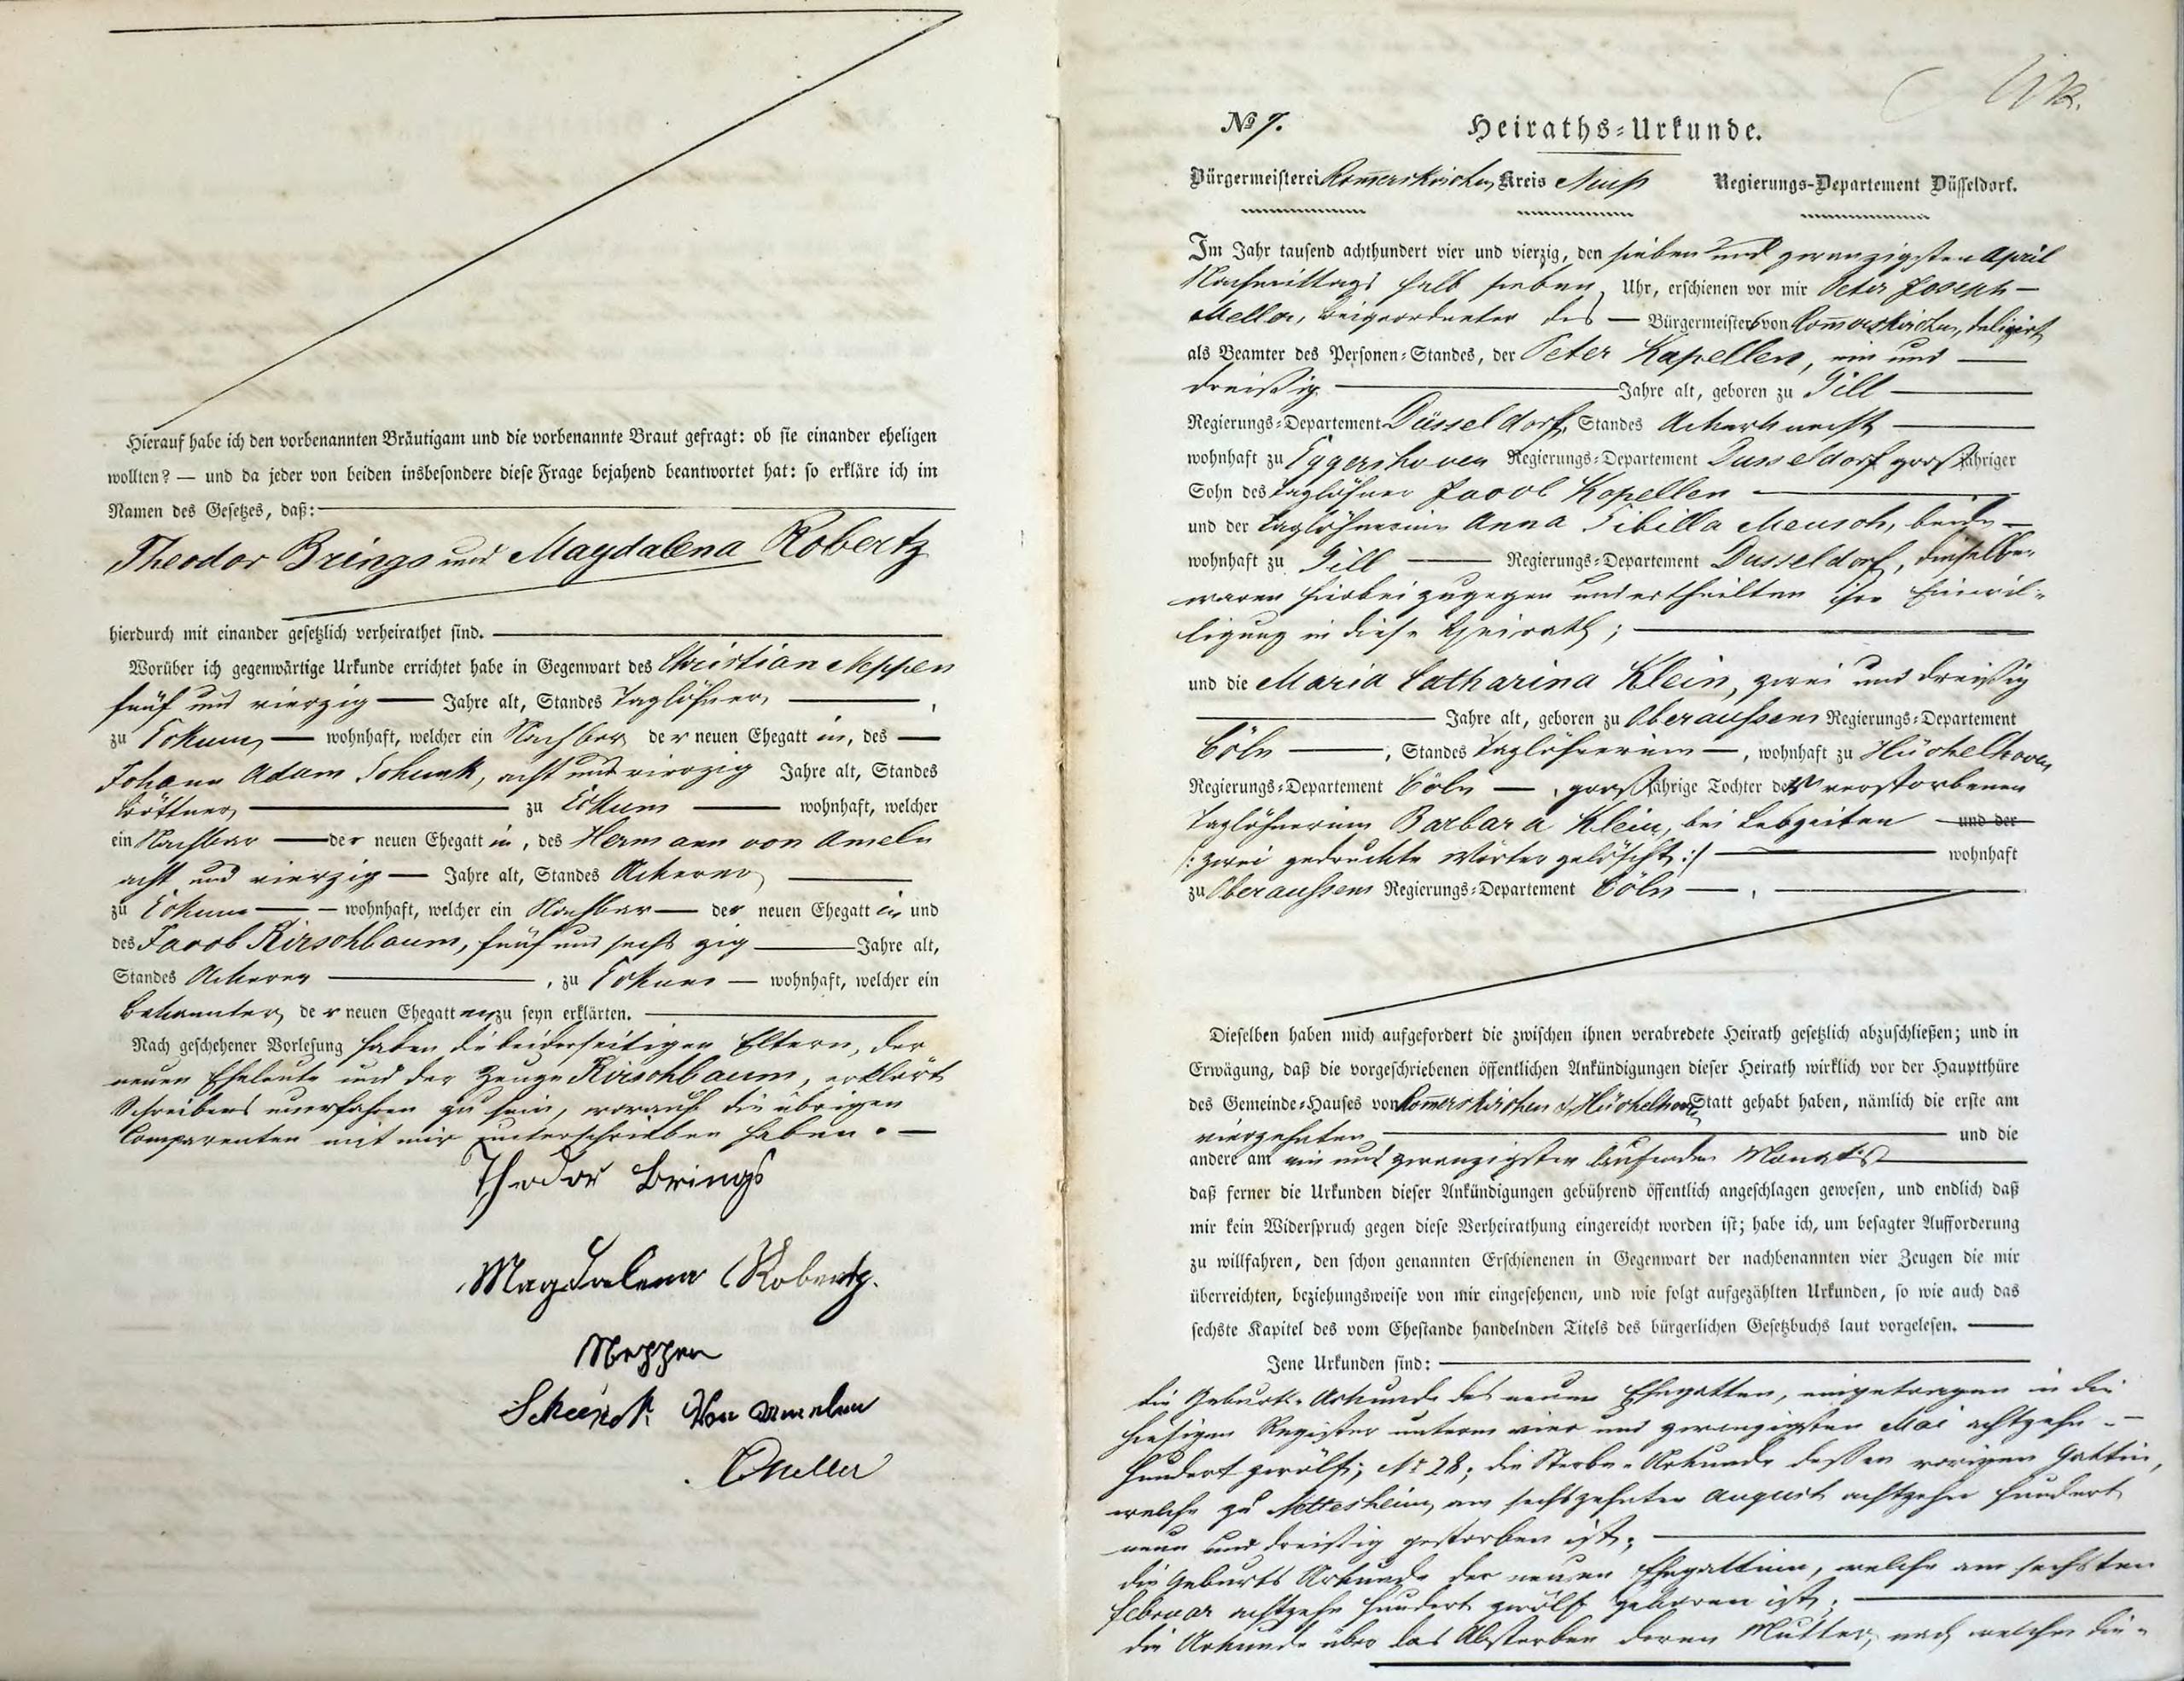 Hierauf habe ich den vorbenannten Bräutigam und die vorbenannte Braut gefragt: ob sie einander eheligen
wollten? — und da jeder von beiden insbesondere diese Frage bejahend beantwortet hat: so erkläre ich im
Namen des Gesetzes, daß:
Theodor Brings und Magdalena Robertz
hierdurch mit einander gesetzlich verheirathet sind.
Worüber ich gegenwärtige Urkunde errichtet habe in Gegenwart des Christian Neppen
fünf und vierzig — Jahre alt, Standes Taglöhner,
zu Eckum, — wohnhaft, welcher ein Nachbar der neuen Ehegattin, des —
Johann Adam Schunk, acht und vierzig Jahre alt, Standes
Böttner, zu Eckum — wohnhaft, welcher
ein Nachbar — der neuen Ehegattin, des Hermann von Ameln
acht und vierzig — Jahre alt, Standes Ackerer,
zu Eckum — wohnhaft, welcher ein Nachbar — der neuen Ehegattin und
des Jacob Kirschbaum, fünf und sechszig — Jahre alt,
Standes Ackerer —, zu Eckum — wohnhaft, welcher ein
Bekannter, der neuen Ehegatten zu seyn erklärten.
Nach geschehener Vorlesung haben die beiderseitigen Eltern, der
neuen Eheleute und der Zeuge Kirschbaum, erklärt
Schreibens unerfahren zu sein, worauf die übrigen
Comparenten mit mir unterschrieben haben. —
Theodor Brings
Magdalena Robertz.
Neppen
Schunk Von Ameln
Meller
№ 7. Heiraths-Urkunde.
Bürgermeisterei Rom̅erskirchen, Kreis Neuß Regierungs-Departement Düsseldorf.
Im Jahr tausend achthundert vier und vierzig, den sieben und zwanzigsten April
Nachmittags halb sieben, Uhr, erschienen vor mir Peter Joseph —
Meller, Beigeordneter des — Bürgermeisters von Rom̅erskirchen, deligirt
als Beamter des Personen-Standes, der Peter Kapellen, ein und —
dreißig — Jahre alt, geboren zu Gill —
Regierungs-Departement Düsseldorf, Standes Ackerknecht —
wohnhaft zu Eggershoven Regierungs-Departement Dusseldorf großjähriger
Sohn des Taglöhner Jacob Kapellen —
und der Taglöhnerinn Anna Sibilla Meusch, beide —
wohnhaft zu Gill — Regierungs-Departement Dusseldorf, dieselben
waren hierbei zugegen und ertheilten ihre Einwil-
ligung in diese Heirath; —
und die Maria Catharina Klein, zwei und dreißig
— Jahre alt, geboren zu Oberaußem Regierungs-Departement
Cöln —, Standes Taglöhnerinn —, wohnhaft zu Hüchelhoven
Regierungs-Departement Cöln —, großjährige Tochter der verstorbenen
Taglöhnerinn Barbara Klein, bei Lebzeiten — und der
/: zwei gedruckte Wörter gelöscht :/ — wohnhaft
zu Oberaußem Regierungs-Departement Cöln —,
Dieselben haben mich aufgefordert die zwischen ihnen verabredete Heirath gesetzlich abzuschließen; und in
Erwägung, daß die vorgeschriebenen öffentlichen Ankündigungen dieser Heirath wirklich vor der Hauptthüre
des Gemeinde-Hauses von Rom̅erskirchen & Hüchelhoven Statt gehabt haben, nämlich die erste am
vierzehnten — und die
andere am ein und zwanzigsten laufenden Monats —
daß ferner die Urkunden dieser Ankündigungen gebührend öffentlich angeschlagen gewesen, und endlich daß
mir kein Widerspruch gegen diese Verheirathung eingereicht worden ist; habe ich, um besagter Aufforderung
zu willfahren, den schon genannten Erschienenen in Gegenwart der nachbenannten vier Zeugen die mir
überreichten, beziehungsweise von mir eingesehenen, und wie folgt aufgezählten Urkunden, so wie auch das
sechste Kapitel des vom Ehestande handelnden Titels des bürgerlichen Gesetzbuchs laut vorgelesen. —
Jene Urkunden sind: —
die Geburts-Urkunde des neuen Ehegatten, eingetragen in die
hiesigen Register unterm vier und zwanzigsten Mai achtzehn —
hundert zwölf; Nº 28; die Sterbe-Urkunde dessen vorigen Gattin,
welche zu Nettesheim, am sechszehnten August achtzehn hundert
neun und dreißig gestorben ist; —
die Geburts Urkunde der neuen Ehegattinn, welche am sechsten
Februar achtzehn hundert zwölf geboren ist; —
die Urkunde über das Absterben deren Mutter, nach welcher die-